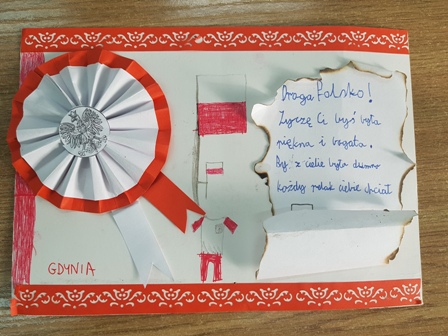 Droga Polsko!
Życzę Ci byś była
piękna i bogata.
By z ciebie była dumna
każdy polak ciebie chciał
GDYNIA